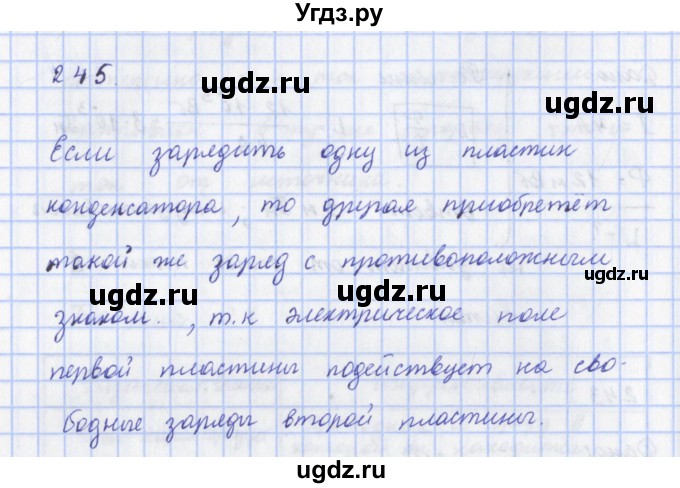 Угдз.ру
245.
ugdz.ru ugdz.ru
Если зарядить одну из пластин
конденсатора, то другая приобретёт
ugdz.ru
такой же заряд с противоположным
ugdz.ru ugdz.ru
знаком., т.к электрическое поле
первой пластины подействует на сво-
ugdz.ru ugdz.ru
бодные заряды второй пластины.
ugdz.ru